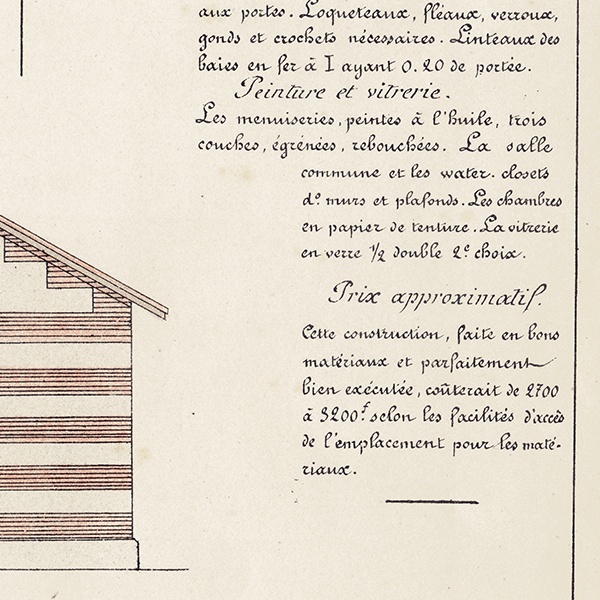 aux portes. Loqueteaux, fléaux, verroux,
gonds et crochets nécessaires. Linteaux des
baies en fer à I ayant 0.20 de portée.
Peinture et vitrerie.
Les menuiseries, peintes à l'huile, trois
couches, égrénées, rebouchées. La salle
commune et les water. closets
d° murs et plafonds. Les chambres
en papier de tenture. La vitrerie
en verre ½ double 2e choix.
Prix approximatif.
Cette construction, faite en bons
matériaux et parfaitement
bien exécutée, coûterait de 2700
à 3200f selon les facilités d'accès
de l'emplacement pour les maté-
riaux.